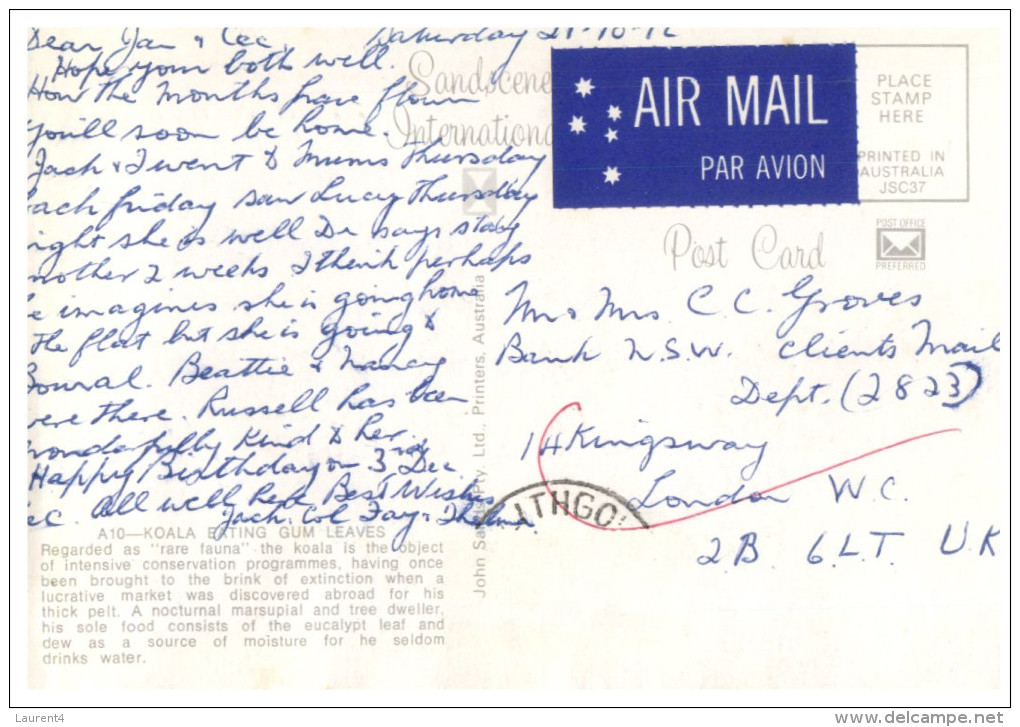 Dear Jan & Cec, Saturday 21-10-72
Hope your both well.
How the months have flown
you'll soon be home.
Jack & I went to Mums Thursday
back friday saw Lucy Thursday
night she is well Dr says stay
another 2 weeks I think perhaps
he imagines she is going home
to the flat but she is going to
Beattie & Nancy
were there. Russell has been
wonderfully kind to her.
Happy Birthday on 3rd Dec
Cec. All well here Best Wishes
Jack, Col Fay & Thelma
A10—KOALA EATING GUM LEAVES
Regarded as "rare fauna" the koala is the object
of intensive conservation programmes, having once
been brought to the brink of extinction when a
lucrative market was discovered abroad for his
thick pelt. A nocturnal marsupial and tree dweller,
his sole food consists of the eucalypt leaf and
dew as a source of moisture for he seldom
drinks water.
Sandscene
International
John Sands Pty. Ltd., Printers, Australia
AIR MAIL
PAR AVION
PLACE
STAMP
HERE
PRINTED IN
AUSTRALIA
JSC37
Post Card
POST OFFICE
PREFERRED
Mr & Mrs. C. C. Groves
Bank N.S.W. Clients Mail
Dept. (2823)
14 Kingsway
London W.C.
2.B. 6.L.T. U.K
LITHGO
Laurent4
www.delcampe.net